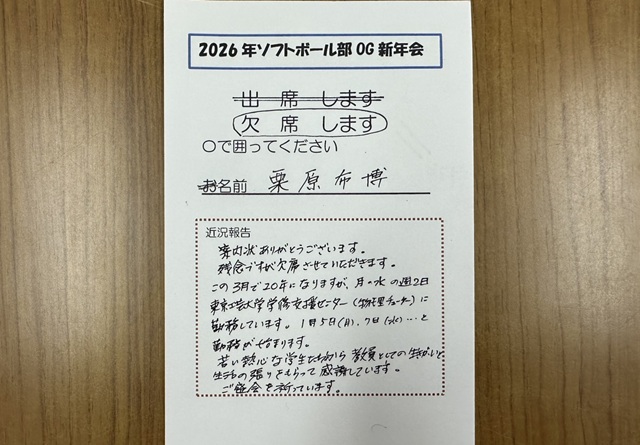 2026年ソフトボール部OG新年会
出席します
欠席します
○で囲ってください
お名前 栗原布博
近況報告
案内状ありがとうございます。
残念ですが欠席させていただきます。
この3月で20年になりますが、月・水の週2日
東京工芸大学学修支援センター(物理チューター)に
勤務しています。1月5日(月)、7日(水)…と
勤務が始まります。
若い熱心な学生たちから教員としての生きがいと
生活の張りをもらって感謝しています。
ご盛会を祈っています。